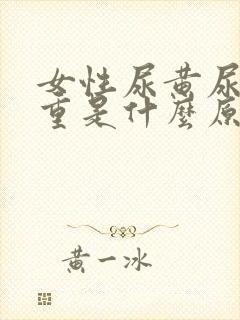 女性尿黄尿
重是什麼原
黄一冰